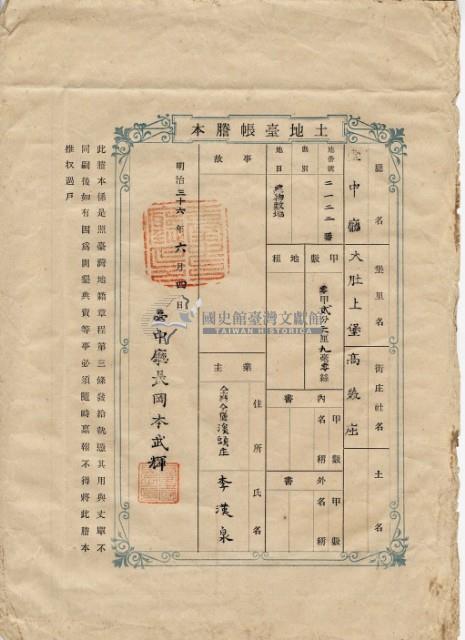 土地臺帳謄本
廳名
堡里名
街庄社名
土名
臺中廳大肚上堡高數座
地番號
二一二二番
則別
地目
建物敷地
甲數
零甲貳分六厘九毫零絲
地租
內書
甲數
名稱
外書
甲數
名稱
事故
業主
住所
氏名
仝廳仝堡溪頭庄
李漢泉
明治三十六年六月四日
臺中廳長岡本武輝
此謄本係是照臺灣地籍章程第三條發給執憑其用與丈單不
同嗣後如有因爲開墾典賣等事必須隨時稟報不得將此謄本
推收過戶
國史館臺灣文獻館
TAIWAN HISTORICA